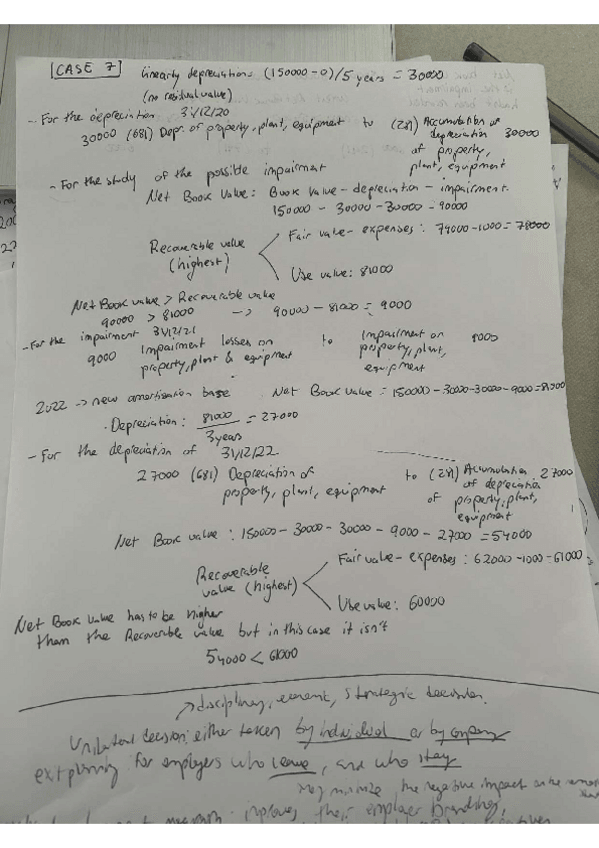 [CASE 7] linearly depreciation: (150000-0)/5 years = 30000
(no residual value)
- For the depreciation 31/12/20
30000 (681) Depr. of property, plant, equipment to (281) Accumulation of depreciation of property, plant, equipment 30000
- For the study of the possible impairment
Net Book Value: Book Value - depreciation - impairment.
150000 - 30000 - 30000 = 90000
Fair value - expenses: 79000-1000 = 78000
Recoverable value
(highest)
Use value: 81000
Net Book value > Recoverable value
90000 > 81000 -> 90000 - 81000 = 9000
- For the impairment 31/12/21
9000 Impairment losses on property, plant & equipment to Impairment on property, plant, equipment 9000
2022 -> new amortization base Net Book Value = 150000-30000-30000-9000=81000
· Depreciation: 81000 / 3 years = 27000
- For the depreciation of 31/12/22
27000 (681) Depreciation of property, plant, equipment to (281) Accumulation of depreciation of property, plant, equipment 27000
Net Book value: 150000 - 30000 - 30000 - 9000 - 27000 = 54000
Fair value - expenses: 62000-1000=61000
Recoverable
value (highest)
Use value: 60000
Net Book Value has to be higher
than the Recoverable value but in this case it isn't
54000 < 61000
disciplinary, economic, strategic decision.
Unilateral decision either taken by individual or by company
for employers who leave, and who stay
minimize the negative impact on the
improves their employer branding,